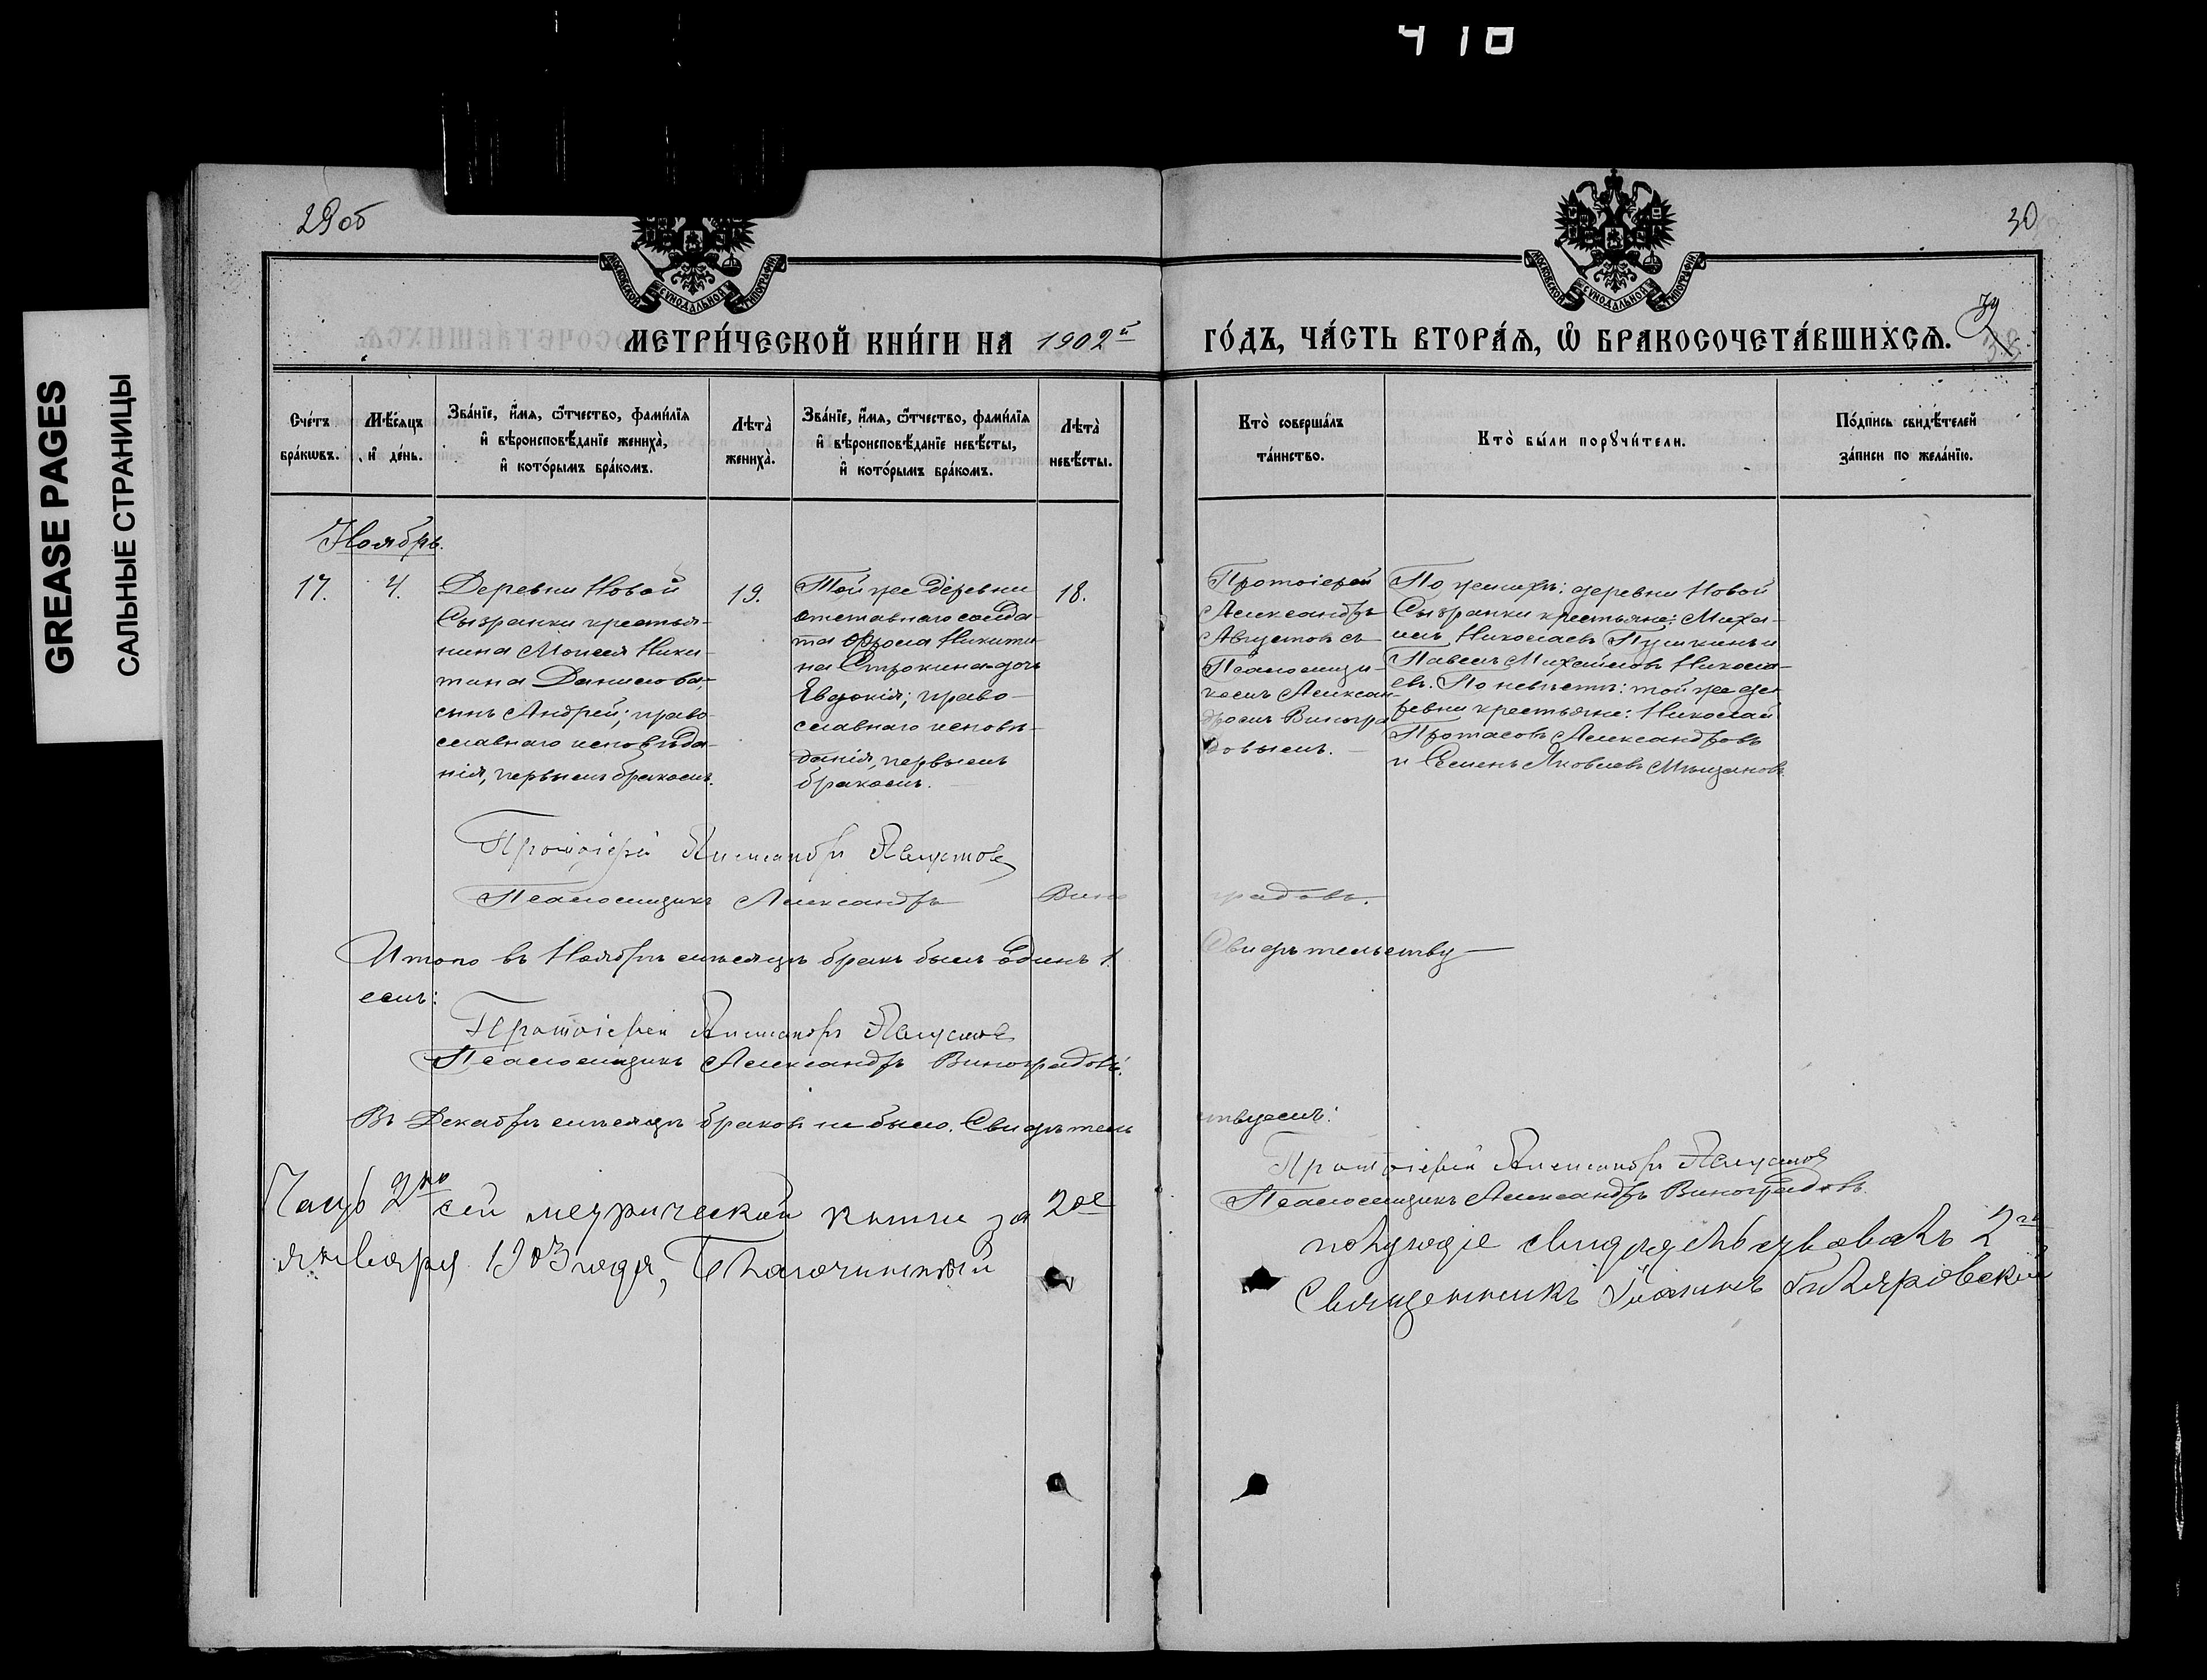 410
GREASE PAGES
САЛЬНЫЕ СТРАНИЦЫ
29об
30
МОСКОВСКОЙ СѴНОДАЛЬНОЙ ТИПОГРАФІИ
МОСКОВСКОЙ СѴНОДАЛЬНОЙ ТИПОГРАФІИ
МЕТРИ́ЧЕСКОЙ КНИ́ГИ НА 1902й
ГО́ДЪ, ЧА́СТЬ ВТОРА́Ѧ, Ѡ҆ БРАКОСОЧЕТА́ВШИХСѦ.
Сче́тъ
бра́кѡвъ.
Мѣ́сяцъ
и҆ де́нь.
Зва́нїе, и҆́мѧ, ѻ҆́тчество, фами́лїѧ
и҆ вѣроисповѣ́данїе жениха̀,
и҆ кото́рымъ бра́комъ.
Лѣта̀
жениха̀.
Зва́нїе, и҆́мѧ, ѻ҆́тчество, фами́лїѧ
и҆ вѣроисповѣ́данїе невѣ́сты,
и҆ кото́рымъ бра́комъ.
Лѣта̀
невѣ́сты.
Кто̀ соверша́лъ
та́инство.
Кто̀ бы́ли порꙋчи́тели.
По́дпись свидѣ́телей
за́писи по жела́нїю.
Ноябрь.
17.
4.
Деревни Новой
Сызранки крестья-
нина Моисея Ники-
тина Данилова,
сынъ Андрей; право-
славнаго исповѣда-
нія, первымъ бракомъ.
19.
Той же деревни
отставнаго солда-
та Ѳомы Никити-
на Строкина дочь
Евдокія; право-
славнаго исповѣ-
данія, первымъ
бракомъ.
18.
Протоіерей
Александръ
Августовъ съ
Псаломщи-
комъ Алексан-
дромъ Виногра-
довымъ.
По женихѣ: деревни Новой
Сызранки крестьяне: Миха-
илъ Николаевъ Пушкинъ и
Павелъ Михайловъ Никола-
евъ. По невѣстѣ: той же де-
ревни крестьяне: Николай
Протасовъ Александровъ
и Семенъ Яковлевъ
Протоіерей Александръ Августовъ
Псаломщикъ Александръ Виноградовъ.
Итого въ Ноябрѣ мѣсяцѣ бракъ былъ одинъ 1. Свидѣтельству-
емъ:
Протоіерей Александръ Августовъ
Псаломщикъ Александръ Виноградовъ.
Въ Декабрѣ мѣсяцѣ браковъ не было. Свидѣтельствуемъ:
Протоіерей Александръ Августовъ
Псаломщикъ Александръ Виноградовъ.
Часть 2ю сей метрической книги за 2ое полугодіе свидѣтельствовалъ 2го
января 1903 года, Благочинный Священникъ Іоаннъ Гиляровскій